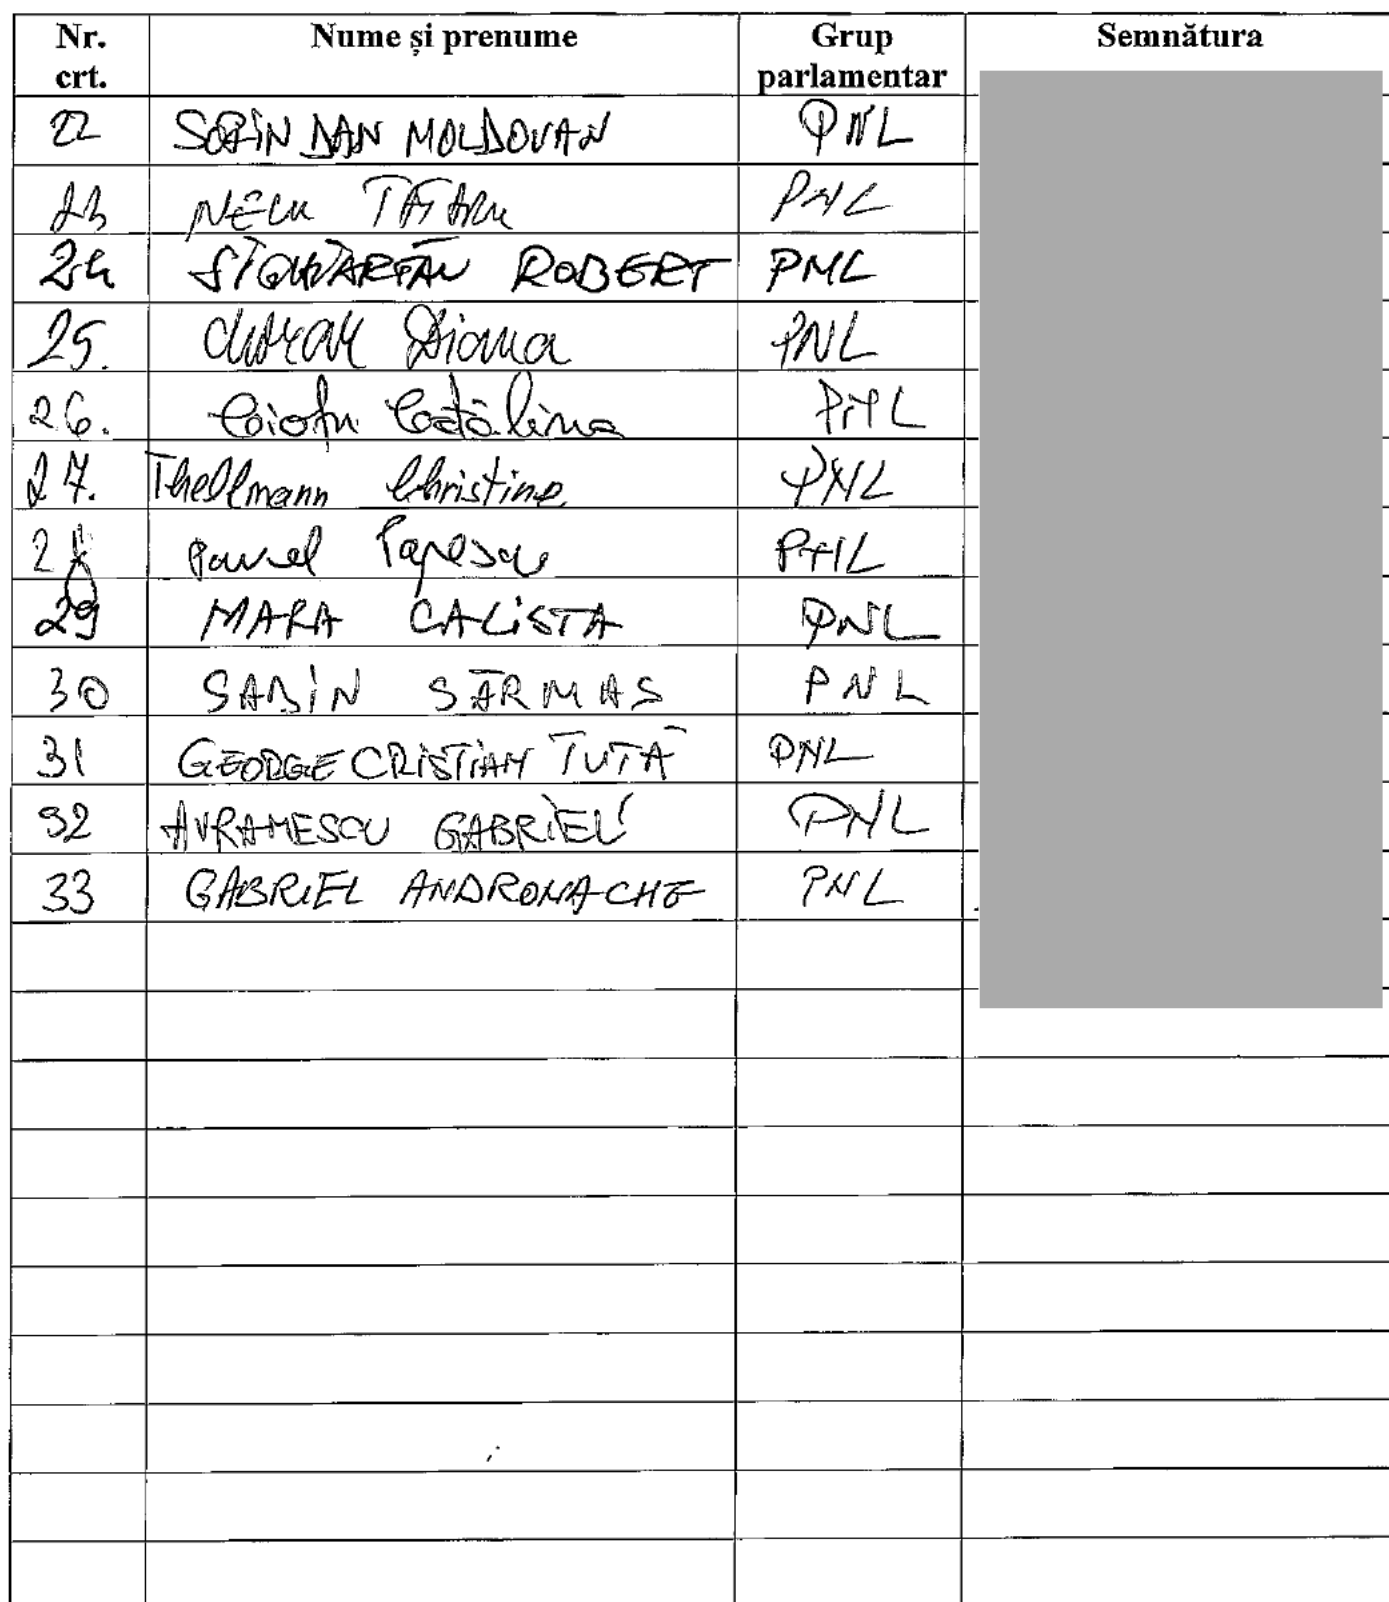 Nr. crt. Nume și prenume Grup parlamentar Semnătura
22 SORIN DAN MOLDOVAN PNL
23 NELU TĂTARU PNL
24 ROBERT PNL
25. Diana PNL
26. Ciofu Cătălina PNL
27. Thellmann Christine PNL
28 Pavel Popescu PNL
29 MARA CALISTA PNL
30 SABIN SĂRMAȘ PNL
31 GEORGE CRISTIAN TUȚĂ PNL
32 AVRAMESCU GABRIEL PNL
33 GABRIEL ANDRONACHE PNL